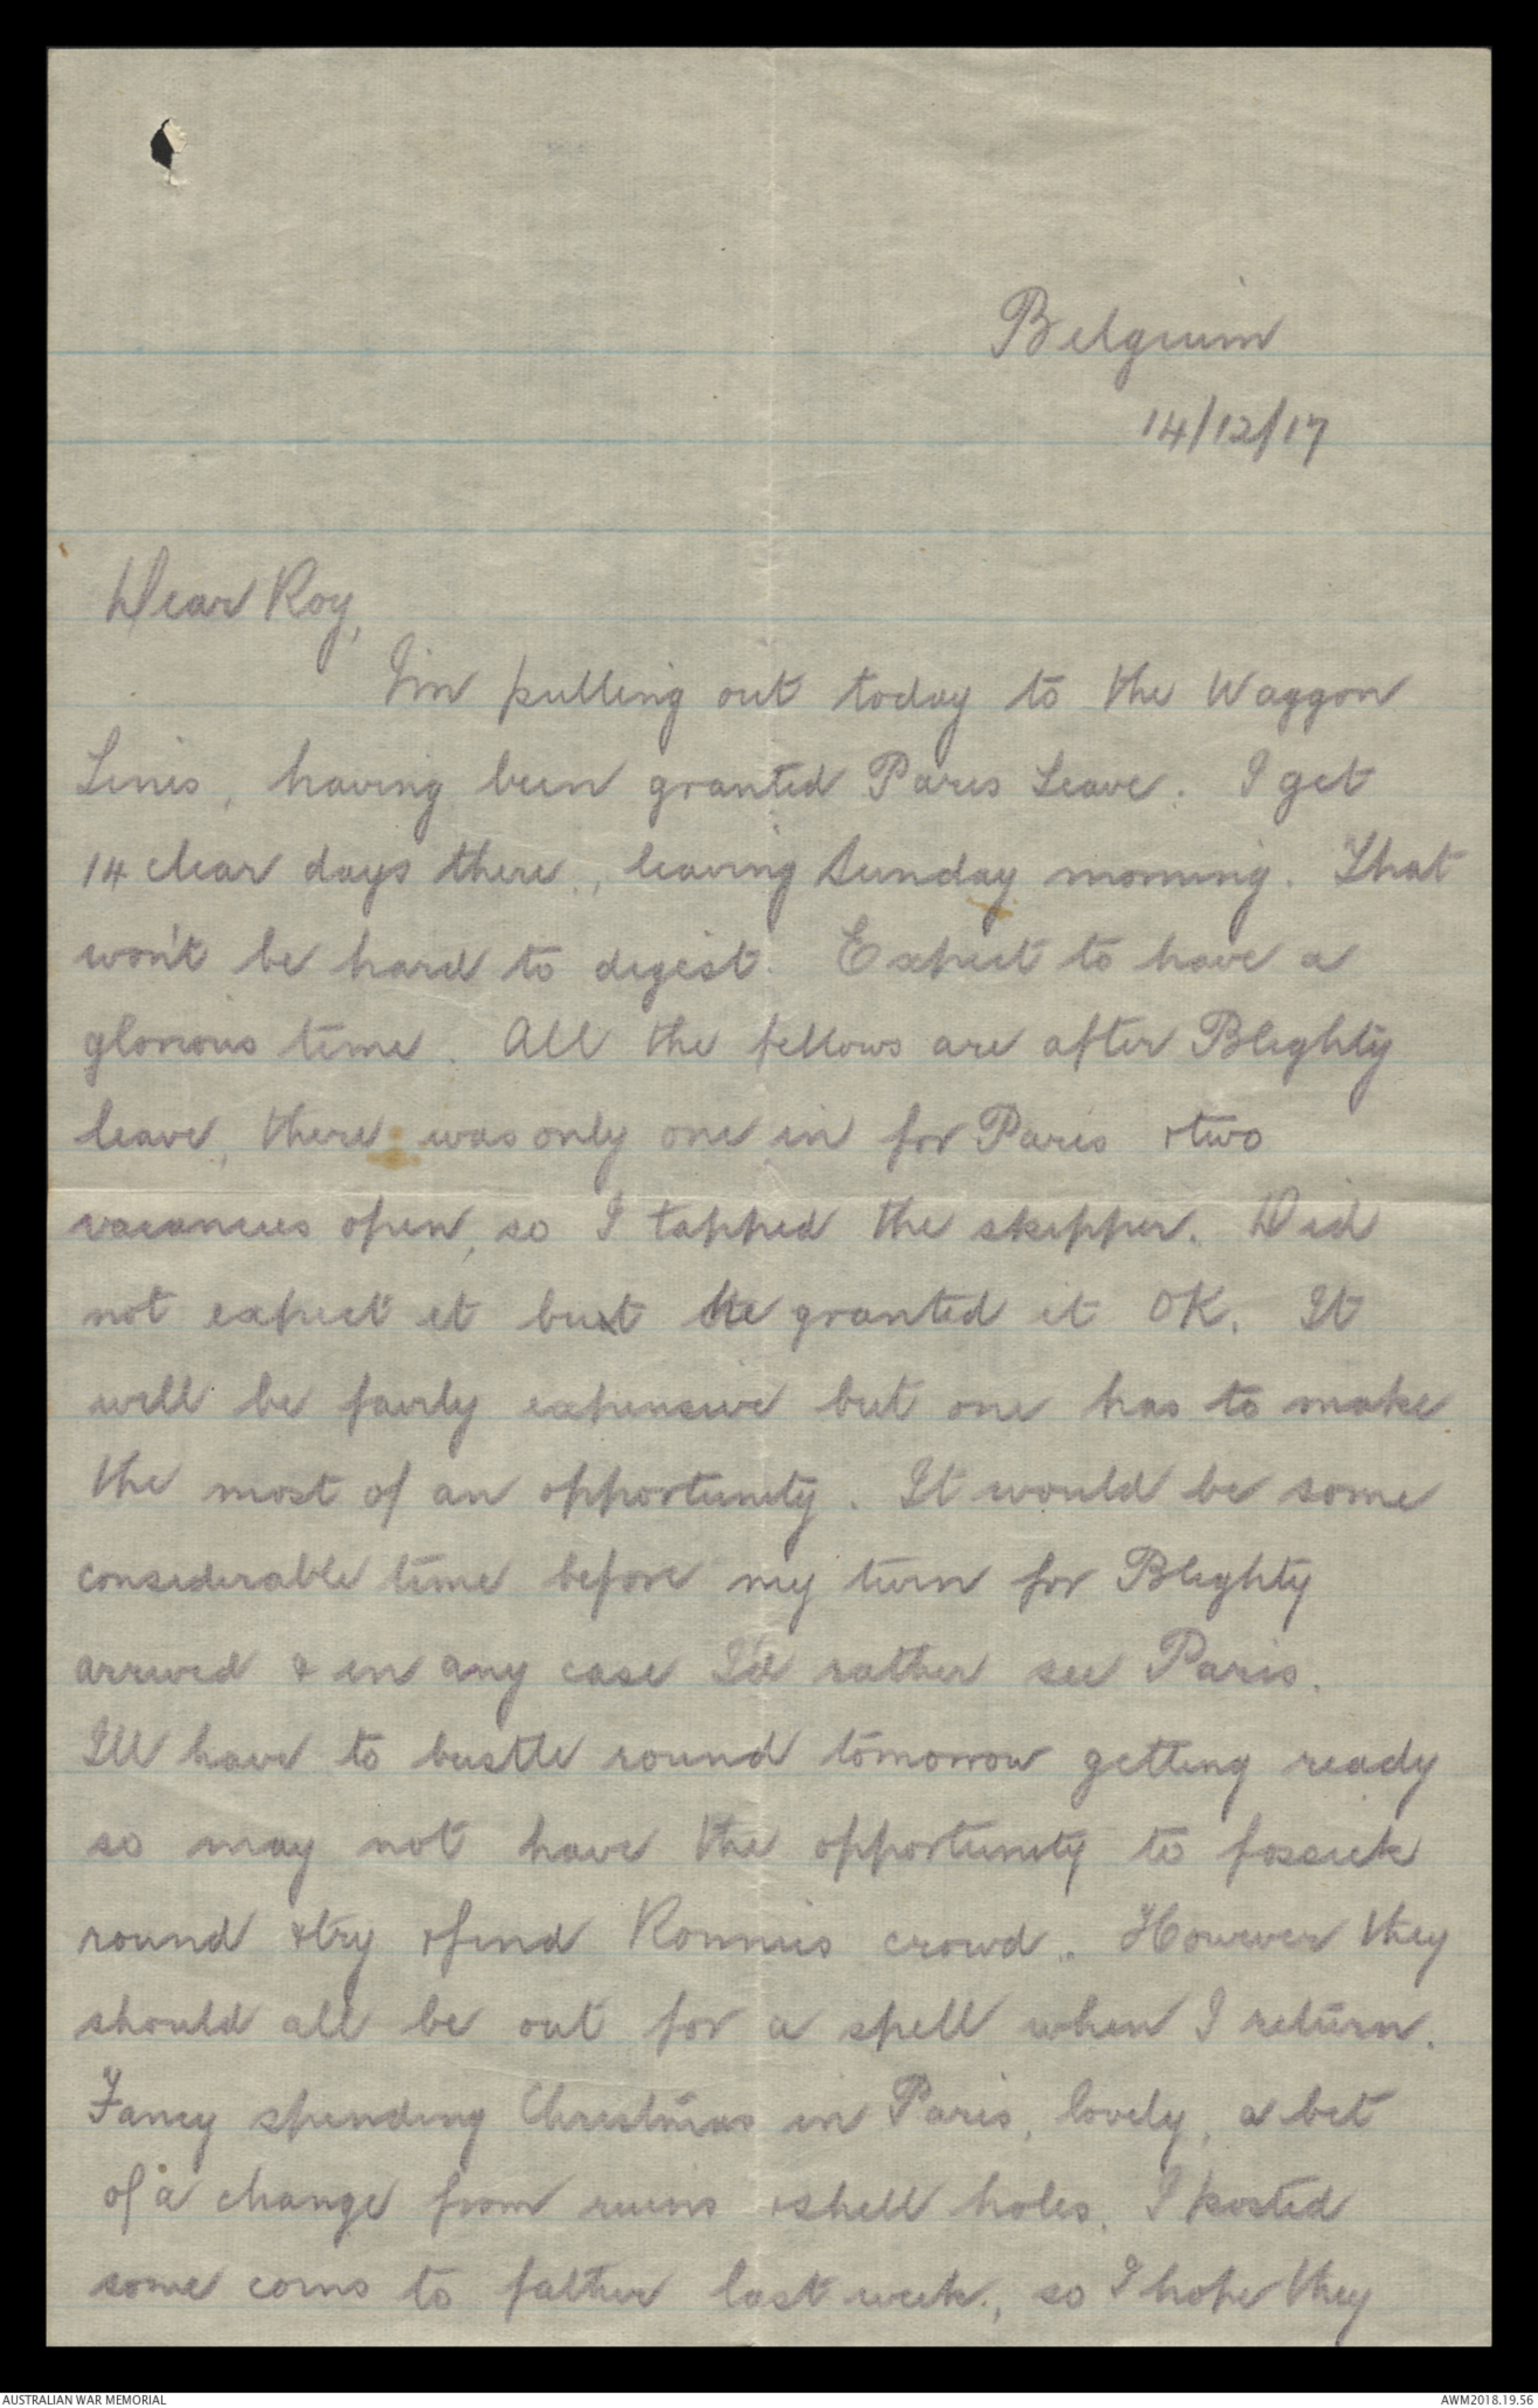 Belgium
14/12/17
Dear Roy,
I'm pulling out today to the Waggon
Lines, having been granted Paris Leave. I get
14 clear days there, leaving Sunday morning. That
won't be hard to digest. Expect to have a
glorious time. All the fellows are after Blighty
leave, there was only one in for Paris & two
vacancies open, so I tapped the skipper. Did
not expect it but he granted it OK. It
will be fairly expensive but one has to make
the most of an opportunity. It would be some
considerable time before my turn for Blighty
arrived & in any case I'd rather see Paris.
I'll have to bustle round tomorrow getting ready
so may not have the opportunity to fossick
round & try & find Ronnie's crowd. However they
should all be out for a spell when I return.
Fancy spending Christmas in Paris, lovely, a bit
of a change from ruins & shell holes. I posted
some coins to father last week, so I hope they
AUSTRALIAN WAR MEMORIAL
AWM2018.19.56